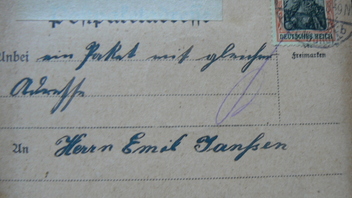 DEUTSCHES REICH
Anbei ein Paket mit gleicher
Freimarken
Adresse
An Herrn Emil Janssen